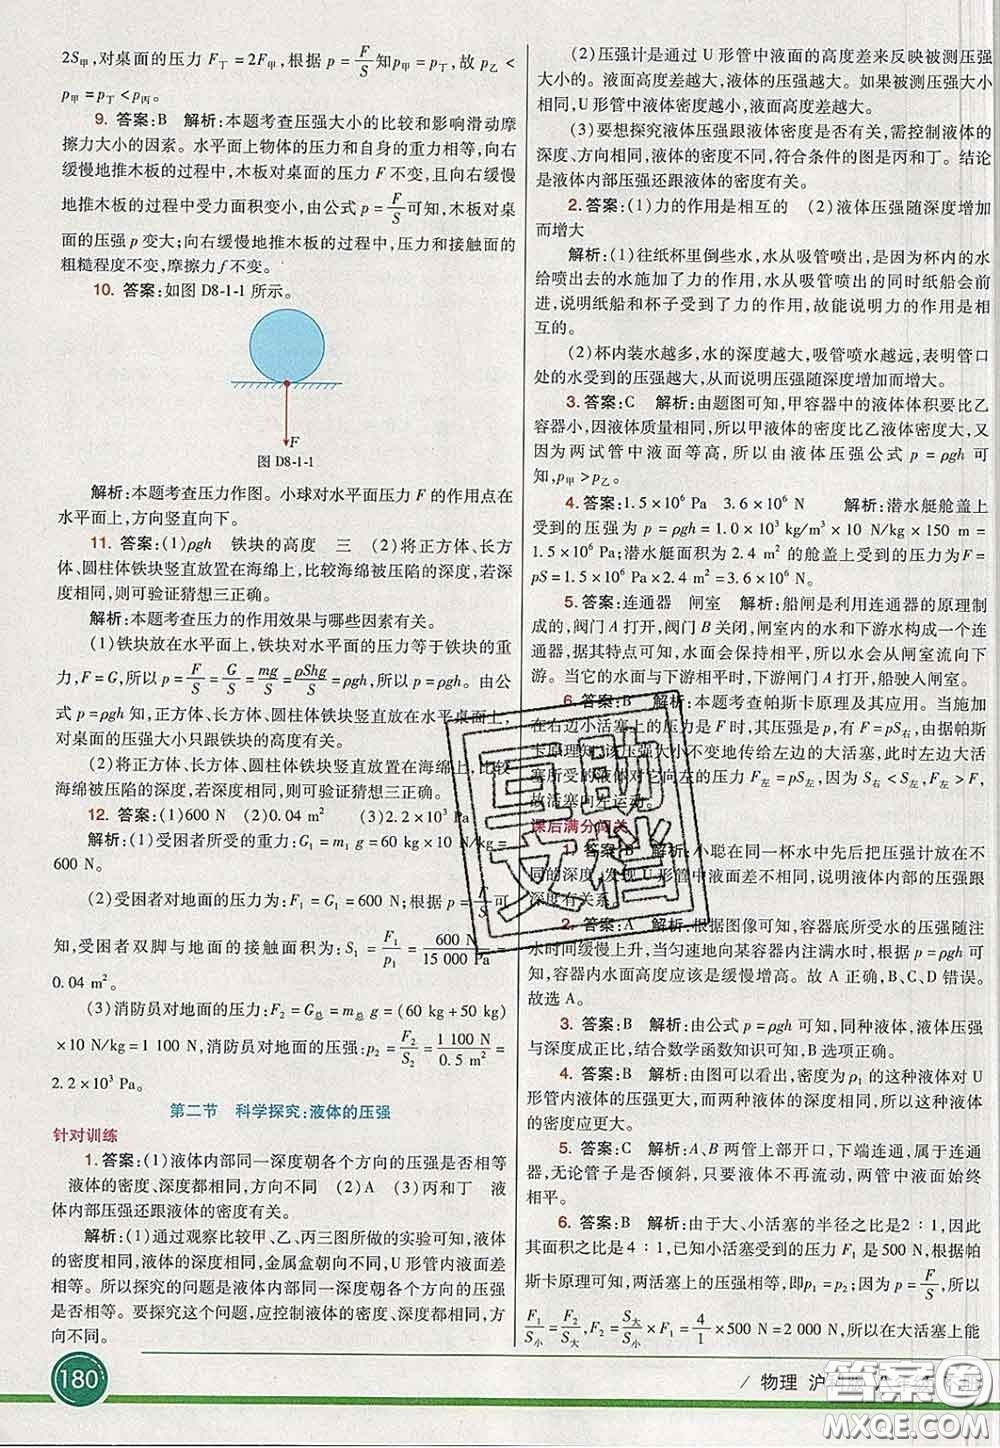 2S甲,对桌面的压力 F丁=2F甲,根据 p=F/S知p甲=p丁,故 p乙<
p甲=p丁<p丙。
9. 答案:B 解析:本题考查压强大小的比较和影响滑动摩
擦力大小的因素。水平面上物体的压力和自身的重力相等,向右
缓慢地推木板的过程中,木板对桌面的压力 F 不变,且向右缓慢
地推木板的过程中受力面积变小,由公式 p=F/S可知,木板对桌
面的压强 p 变大;向右缓慢地推木板的过程中,压力和接触面的
粗糙程度不变,摩擦力 f 不变。
10. 答案:如图 D8-1-1 所示。
F
图 D8-1-1
解析:本题考查压力作图。小球对水平面压力 F 的作用点在
水平面上,方向竖直向下。
11. 答案:(1)ρgh 铁块的高度 三 (2)将正方体、长方
体、圆柱体铁块竖直放置在海绵上,比较海绵被压陷的深度,若深
度相同,则可验证猜想三正确。
解析:本题考查压力的作用效果与哪些因素有关。
(1)铁块放在水平面上,铁块对水平面的压力等于铁块的重
力,F=G,所以 p=F/S=G/S=mg/S=ρShg/S=ρgh,所以 p=ρgh。由公
式 p=ρgh 知,正方体、长方体、圆柱体铁块竖直放置在水平桌面上,
对桌面的压强大小只跟铁块的高度有关。
(2)将正方体、长方体、圆柱体铁块竖直放置在海绵上,比较
海绵被压陷的深度,若深度相同,则可验证猜想三正确。
12. 答案:(1)600 N (2)0.04 m² (3)2.2×10³ Pa
解析:(1)受困者所受的重力:G1=m1 g=60 kg×10 N/kg=
600 N。
(2)受困者对地面的压力为:F1=G1=600 N,根据 p=F/S可
知,受困者双脚与地面的接触面积为:S1=F1/p1=600 N/15 000 Pa=
0.04 m²。
(3)消防员对地面的压力:F2=G总=m总g=(60 kg+50 kg)
×10 N/kg=1 100 N,消防员对地面的压强:p2=F2/S2=1 100 N/0.5 m²=
2.2×10³ Pa。
第二节 科学探究:液体的压强
针对训练
1.答案:(1)液体内部同一深度朝各个方向的压强是否相等
液体的密度、深度都相同,方向不同 (2)A (3)丙和丁 液
体内部压强还跟液体的密度有关。
解析:(1)通过观察比较甲、乙、丙三图所做的实验可知,液体
的密度相同,液体的深度相同,金属盒朝向不同,U 形管中液面差
相等。所以探究的问题是液体内部同一深度朝各个方向的压强
是否相等。要探究这个问题,应控制液体的密度、深度都相同,方
向不同。
180
(2)压强计是通过 U 形管中液面的高度差来反映被测压强
大小的。液面高度差越大,液体的压强越大。如果被测压强大小
相同,U 形管中液体密度越小,液面高度差越大。
(3)要想探究液体压强跟液体密度是否有关,需控制液体的
深度、方向相同,液体的密度不同,符合条件的图是丙和丁。结论
是液体内部压强还跟液体的密度有关。
2.答案:(1)力的作用是相互的 (2)液体压强随深度增加
而增大
解析:(1)往纸杯里倒些水,水从吸管喷出,是因为杯内的水
给喷出去的水施加了力的作用,水从吸管喷出的同时纸船会前
进,说明纸船和杯子受到了力的作用,故能说明力的作用是相
互的。
(2)杯内装水越多,水的深度越大,吸管喷水越远,表明管口
处的水受到的压强越大,从而说明压强随深度增加而增大。
3.答案:C 解析:由题图可知,甲容器中的液体体积要比乙
容器小,因液体质量相同,所以甲液体的密度比乙液体密度大,又
因为两试管中液面等高,所以由液体压强公式 p=ρgh 可
知,p甲>p乙。
4. 答案:1.5×10⁶ Pa 3.6×10⁶ N 解析:潜水艇舱盖上
受到的压强为 p=ρgh=1.0×10³ kg/m³×10 N/kg×150 m=
1.5×10⁶ Pa;潜水艇面积为 2.4 m² 的舱盖上受到的压力为F=
pS=1.5×10⁶ Pa×2.4 m²=3.6×10⁶ N。
5.答案:连通器 闸室 解析:船闸是利用连通器的原理制
成的,阀门 A 打开,阀门 B 关闭,闸室内的水和下游水构成一个连
通器,据其特点可知,水面会相平,所以,水会从闸室流向下
游。当它的水面与下游相平时,下游闸门 A 打开,船驶入闸室。
6.答案:B 解析:本题考查帕斯卡原理及其应用。当施加
在右边小活塞上的力是 F 时,其压强是 p,有 F=pS右,由据帕斯
卡原理知,该压强大小不变地传给左边的大活塞,此时左边大活
塞所受的液体对它向左的压力 F左=pS左,因为 S右<S左,F左>F,
故活塞向左运动。
课后满分闯关
1.答案:B 解析:小聪在同一杯水中先后把压强计放在不
同的深度,发现 U 形管中液面差不相同,说明液体内部的压强跟
深度有关系。
2.答案:A 解析:根据图像可知,容器底所受水的压强随注
水时间缓慢上升,当匀速地向某容器内注满水时,根据 p=ρgh 可
知,容器内水面高度应该是缓慢增高。故 A 正确,B、C、D 错误。
故选 A。
3. 答案:B 解析:由公式 p=ρgh 可知,同种液体,液体压强
与深度成正比,结合数学函数知识可知,B 选项正确。
4. 答案:B 解析:由图可以看出,密度为 ρ1 的这种液体对 U
形管内液体的压强大,而两种液体的深度相同,所以这种液体的
密度应更大。
5. 答案:C 解析:A、B 两管上部开口,下端连通,属于连通
器,无论管子是否倾斜,只要液体不再流动,两管中液面始终
相平。
6. 答案:B 解析:由于大、小活塞的半径之比是2∶1,因此
其面积之比是 4∶1,已知小活塞受到的压力 F1 是 500 N,根据帕
斯卡原理可知,两活塞上的压强相等,即p1=p2;因为 p=F/S,所以
F1/S小=F2/S大,F2=S大/S小×F1=4/1×500 N=2 000 N,所以在大活塞上能
物理 沪
互助
文档
答案圈
MXQE.COM